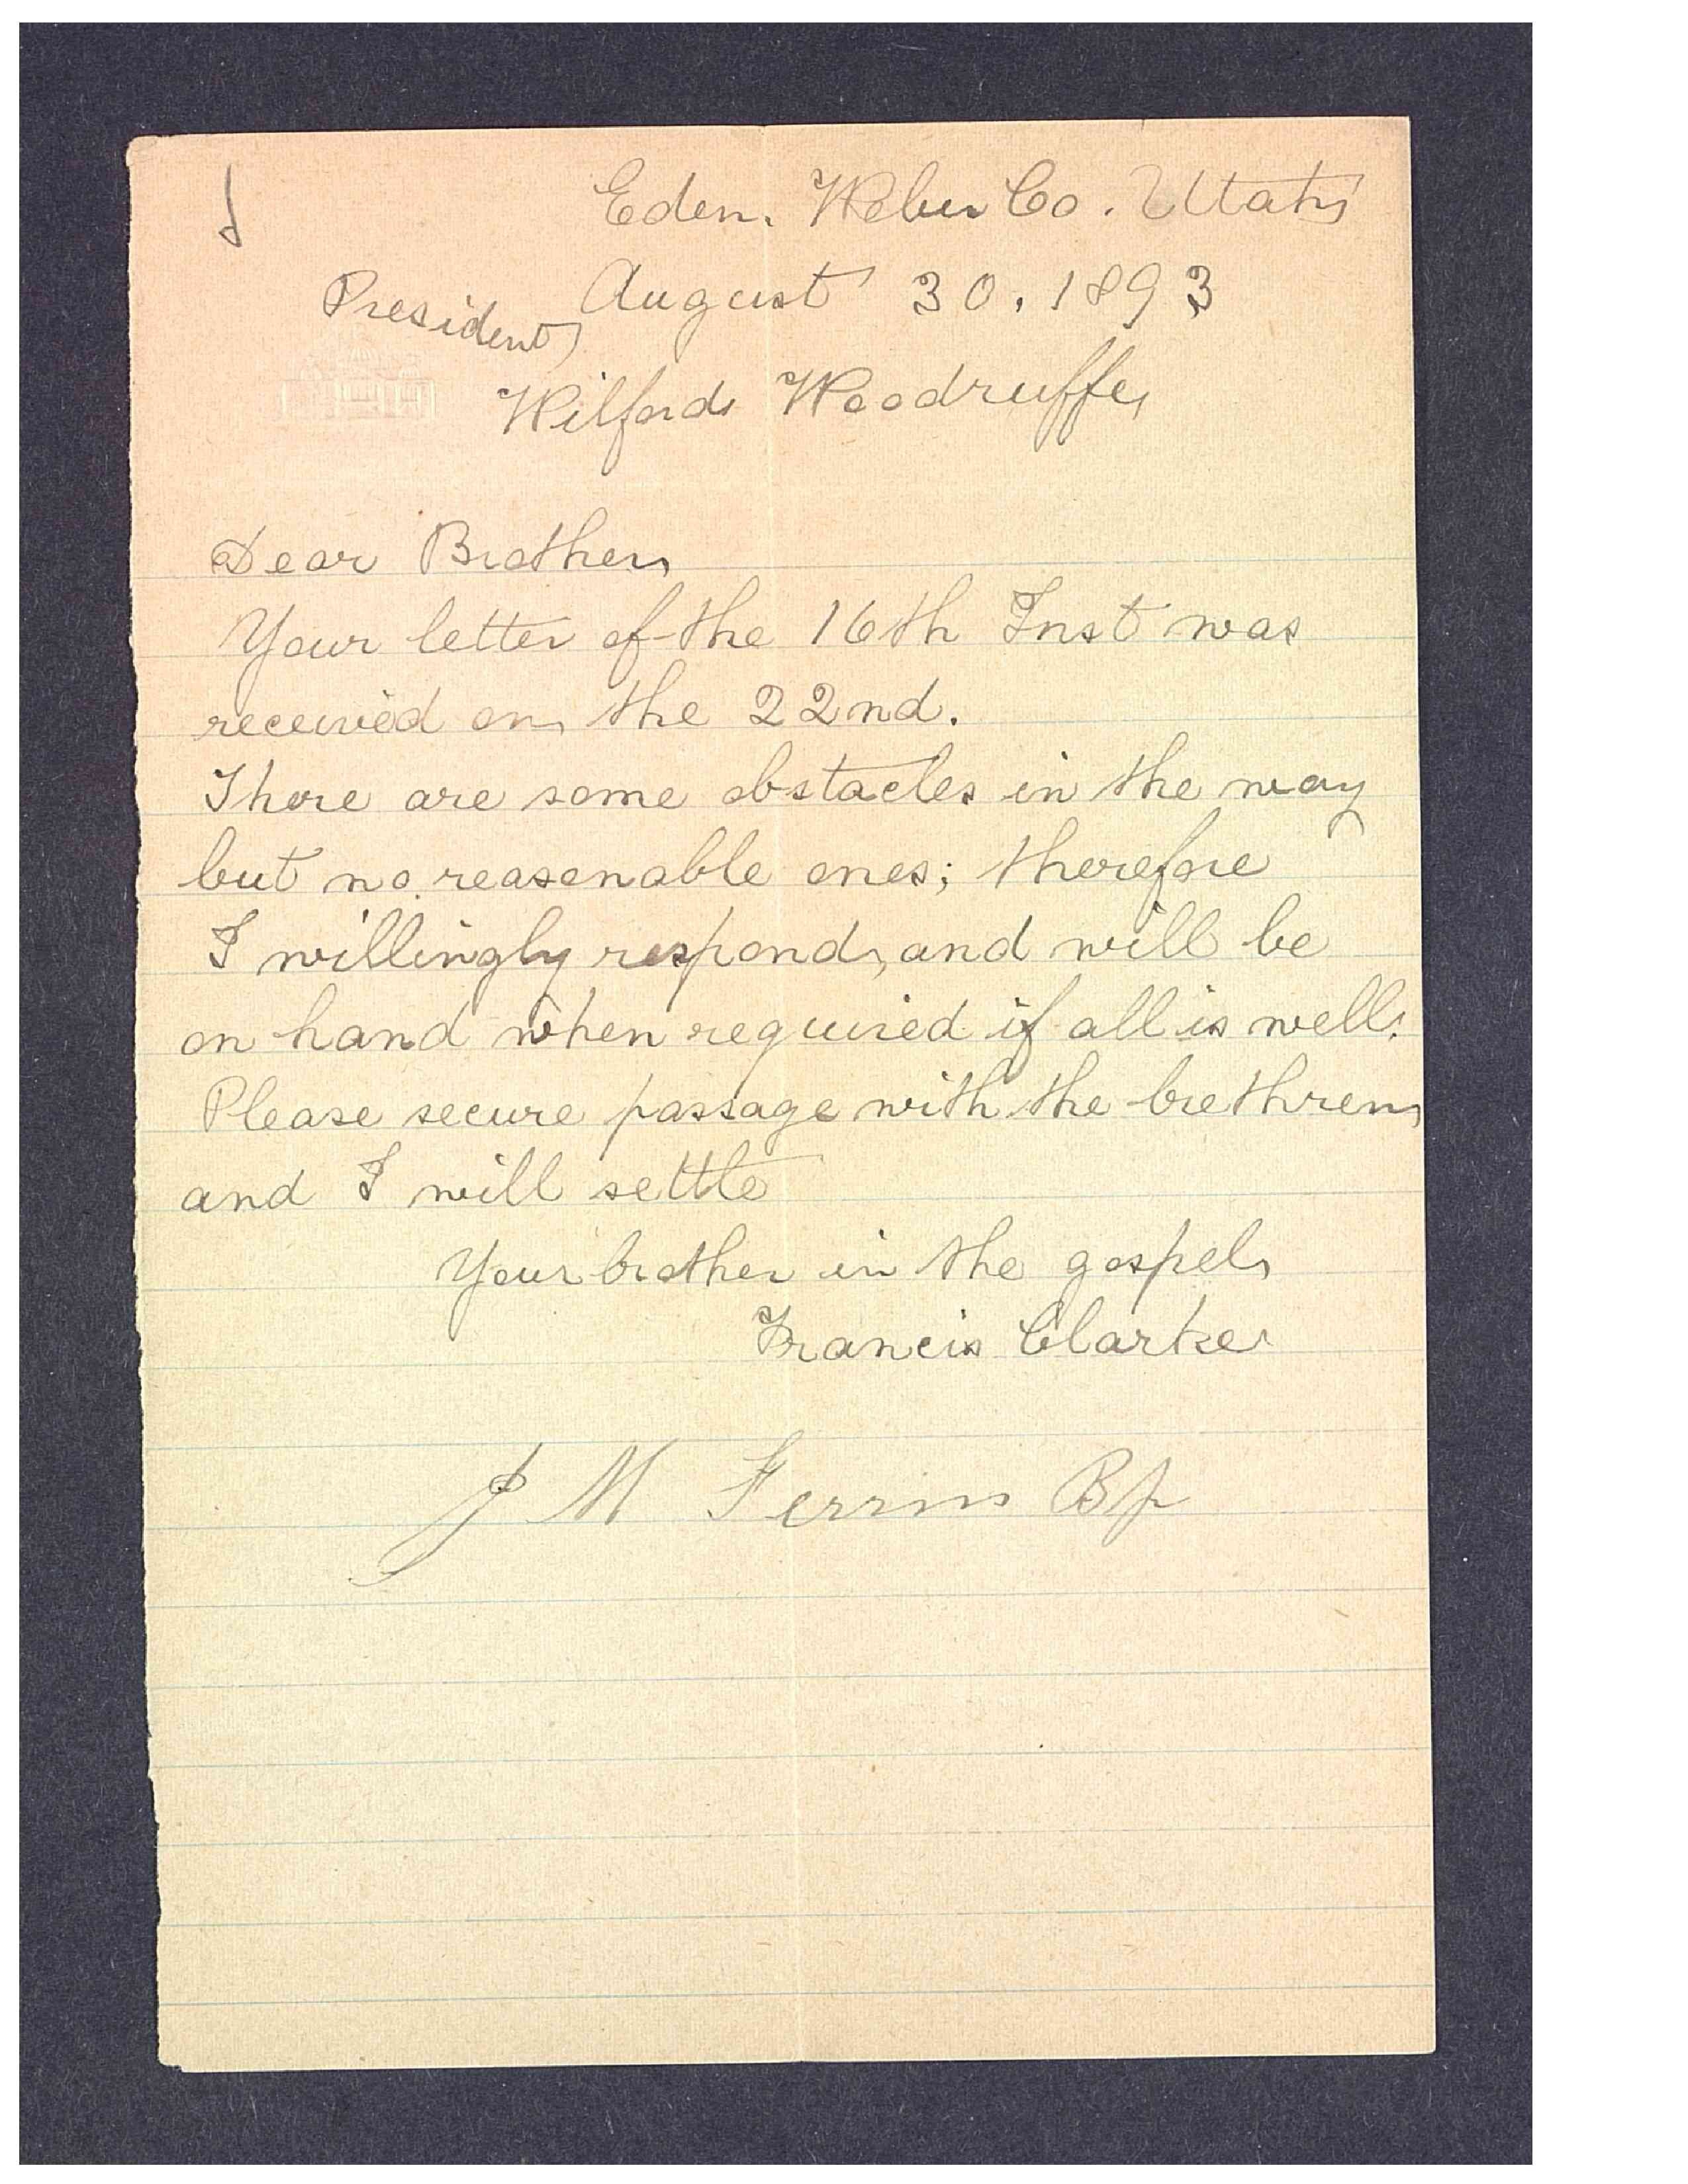 Eden, Weber Co. Utah
August 30, 1893
President
Wilford Woodruffe,
Dear Brother,
Your letter of the 16th Inst was
received on the 22nd.
There are some obstacles in the way
but no reasonable ones; therefore
I willingly respond, and will be
on hand when required if all is well.
Please secure passage with the brethren,
and I will settle
Your brother in the gospel,
Francis Clarke
J M Ferrin Bp